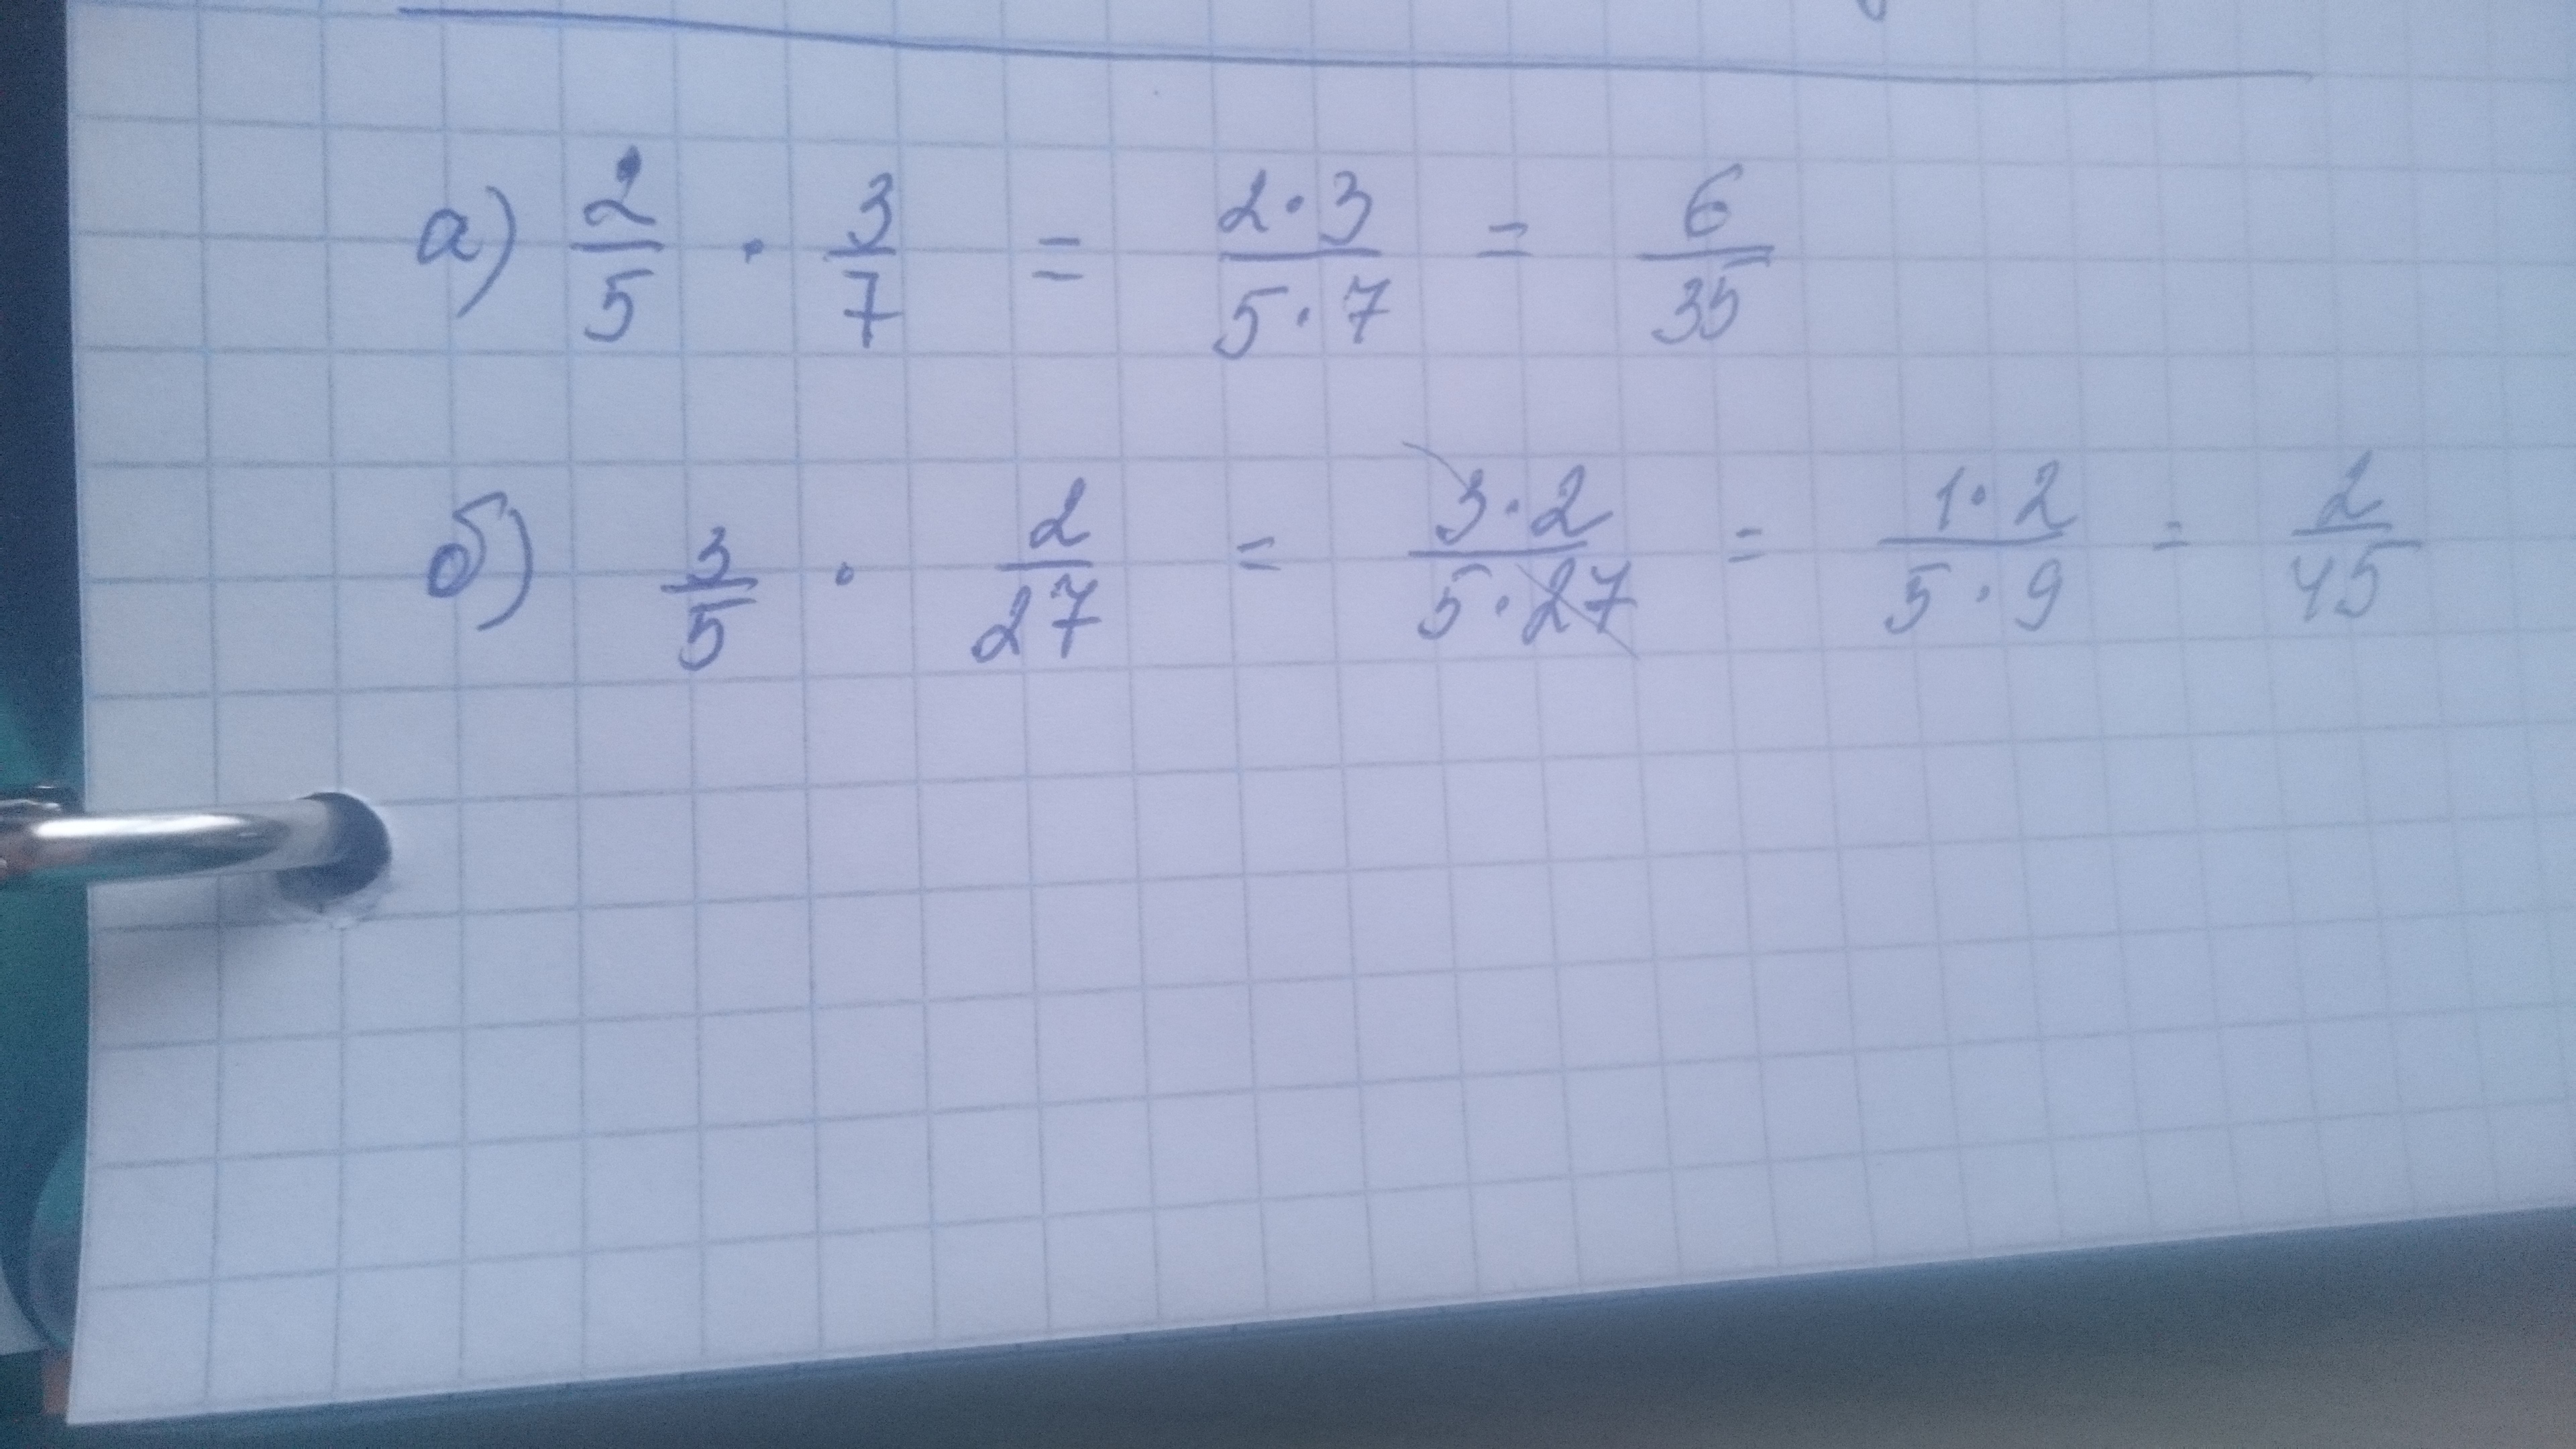 а) 2/5 · 3/7 = 2·3/5·7 = 6/35
б) 3/5 · 2/27 = 3·2/5·27 = 1·2/5·9 = 2/45